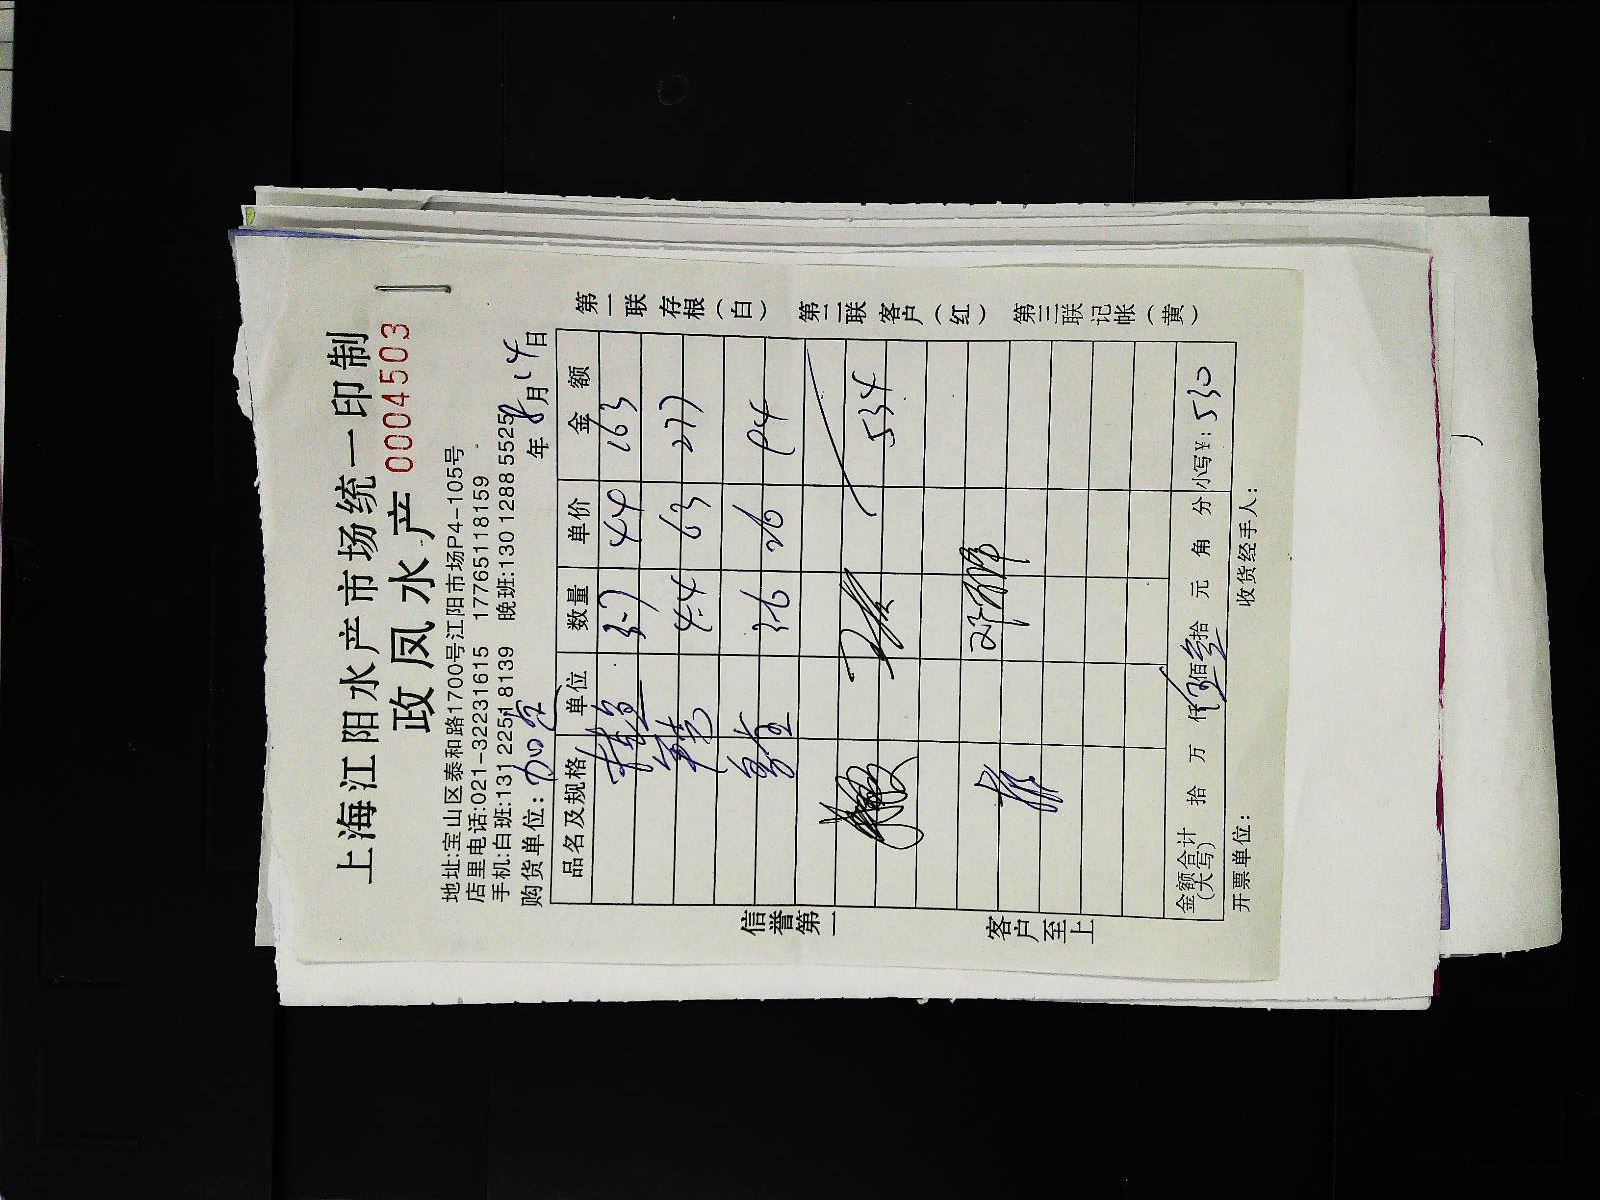 上海江阳水产市场统一印制
政凤水产 0004503
地址:宝山区泰和路1700号江阳市场P4-105号
店里电话:021-32231615 17765118159
手机:白班:131 2251 8139 晚班:130 1288 5525
购货单位: 年 8月14日
品名及规格 单位 数量 单价 金额
3-7 44 163
4-4 63 277
3-6 26 94
534
金额合计(大写) 拾 万 仟 伍佰叁拾 元 角 分 小写¥: 530
开票单位: 收货经手人:
信誉第一
客户至上
第一联存根(白) 第二联客户(红) 第三联记帐(黄)